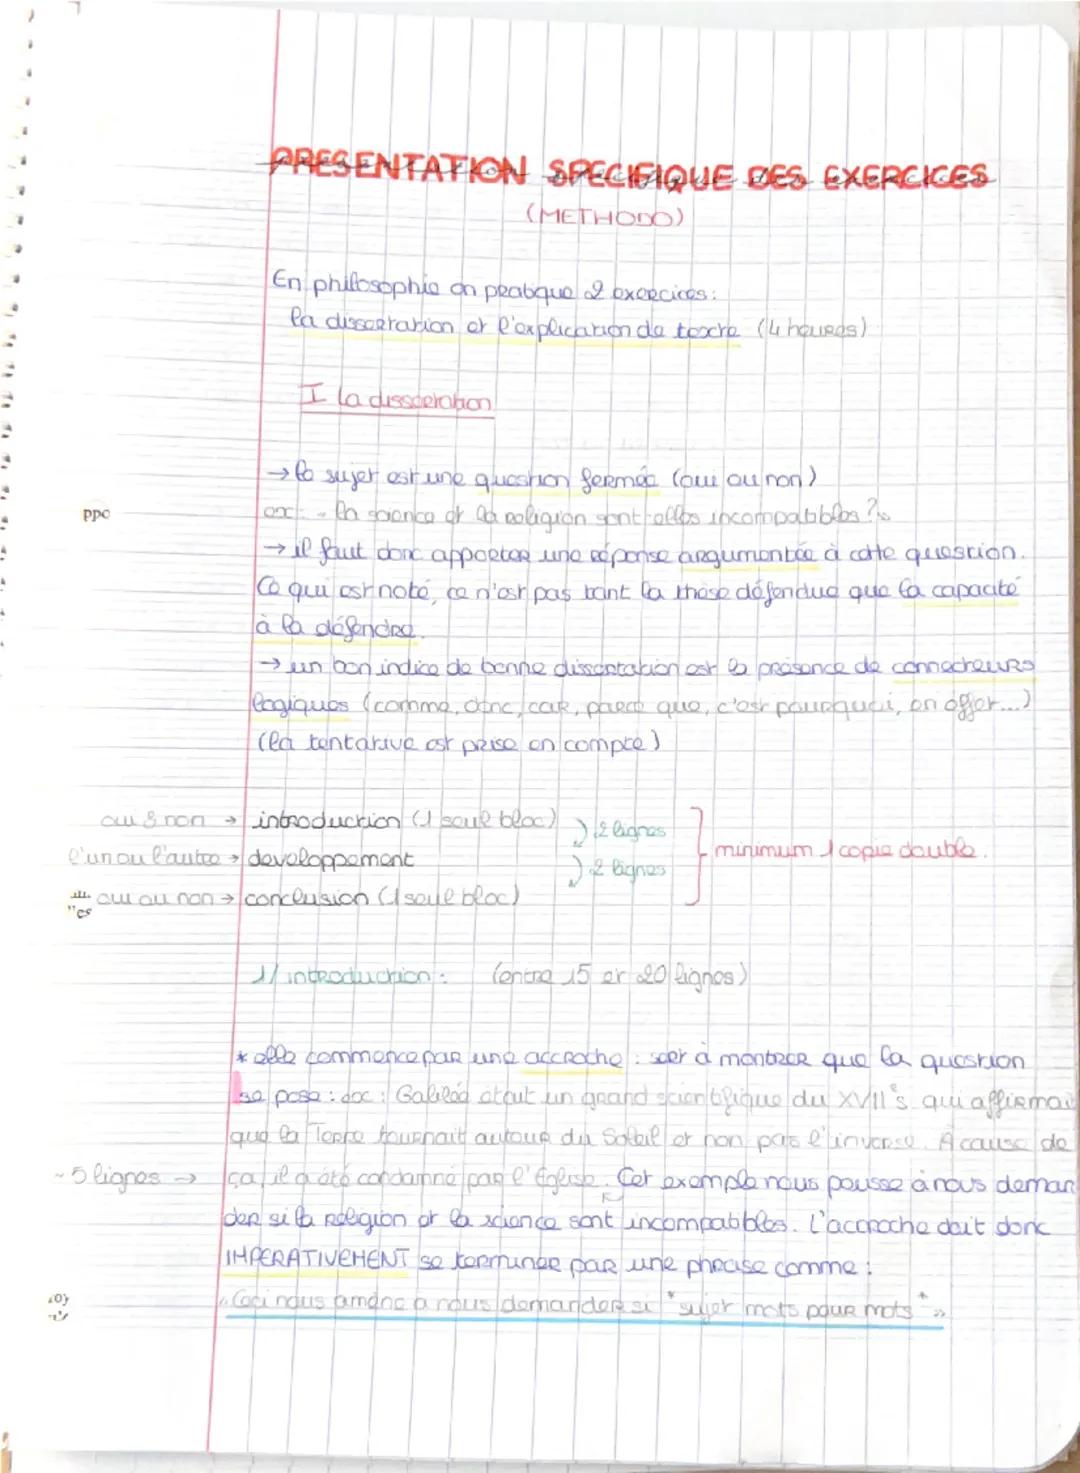 PRESENTATION SPECIFIQUE DES EXERCICES
(METHODO)
En philosophie on pratique 2 exercices :
la dissertation et l'explication de texte (4 heures)
I La dissertation
→ le sujet est une question fermée (oui ou non)
ex : « la science et la religion sont-elles incompatibles ? »
ppc
→ il faut donc apporter une réponse argumentée à cette question.
Ce qui est noté, ce n'est pas tant la thèse défendue que la capacité
à la défendre.
→ un bon indice de bonne dissertation est la présence de connecteurs
logiques (comme, donc, car, parce que, c'est pourquoi, en effet...)
(la tentative est prise en compte)
oui & non → introduction (1 seul bloc) ) 2 lignes
l'un ou l'autre → developpement ) 2 lignes } minimum 1 copie double.
oui ou non → conclusion (1 seul bloc)
1/ introduction : (entre 15 et 20 lignes)
* elle commence par une accroche : sert à montrer que la question
se pose : doc : Galilée était un grand scientifique du XVII°s qui affirmai
que la Terre tournait autour du Soleil et non pas l'inverse. A cause de
~ 5 lignes → ça, il a été condamné par l'Eglise. Cet exemple nous pousse à nous deman
der si la religion et la science sont incompatibles. L'accroche doit donc
IMPERATIVEMENT se terminer par une phrase comme :
« Ceci nous amène a nous demander si *sujet mots pour mots* »